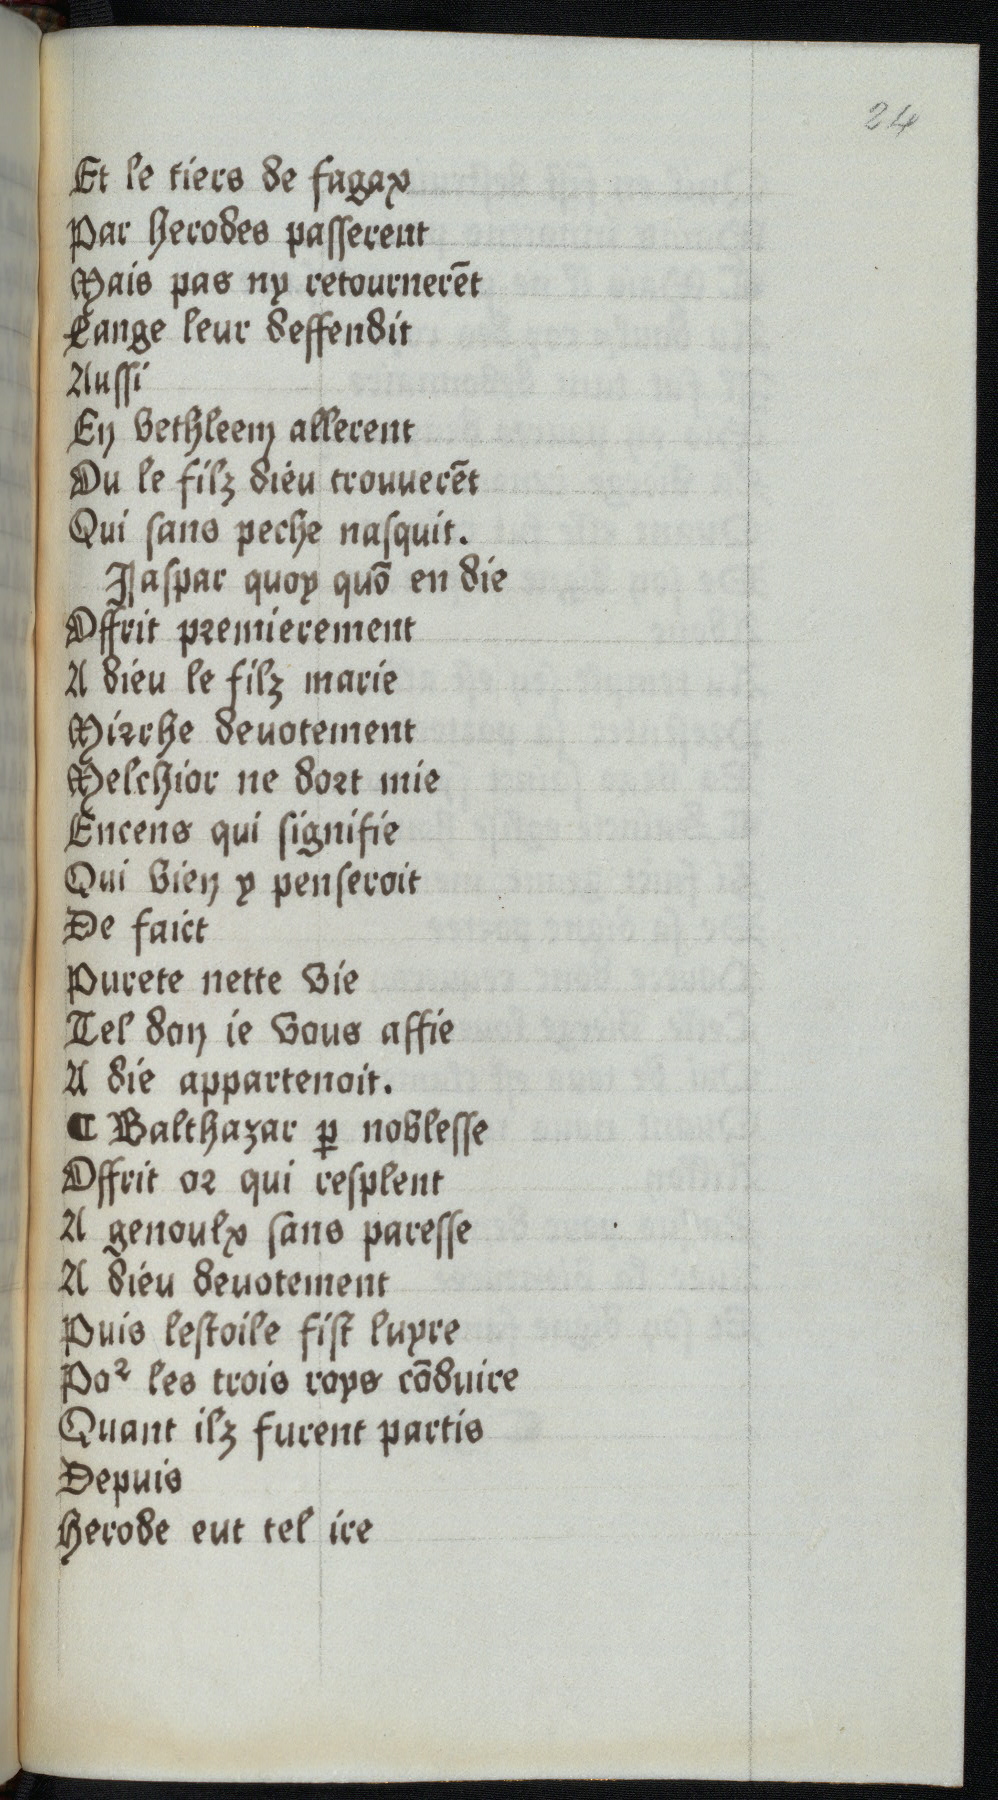 24
Et le tiers de fagax
Par herodes passerent
Mais pas ny retournerēt
Lange leur deffendit
Aussi
En bethleem allerent
Ou le filz dieu trouuerēt
Qui sans peche nasquit.
Jaspar quoy quō en die
Offrit premierement
A dieu le filz marie
Mirrhe deuotement
Melchior ne dort mie
Encens qui signifie
Qui bien y penseroit
De faict
Purete nette vie
Tel don ie vous affie
A die appartenoit.
¶ Balthazar ꝑ noblesse
Offrit or qui resplent
A genoulx sans paresse
A dieu deuotement
Puis lestoile fist luyre
Poꝛ les trois roys cōduire
Quant ilz furent partis
Depuis
Herode eut tel ire